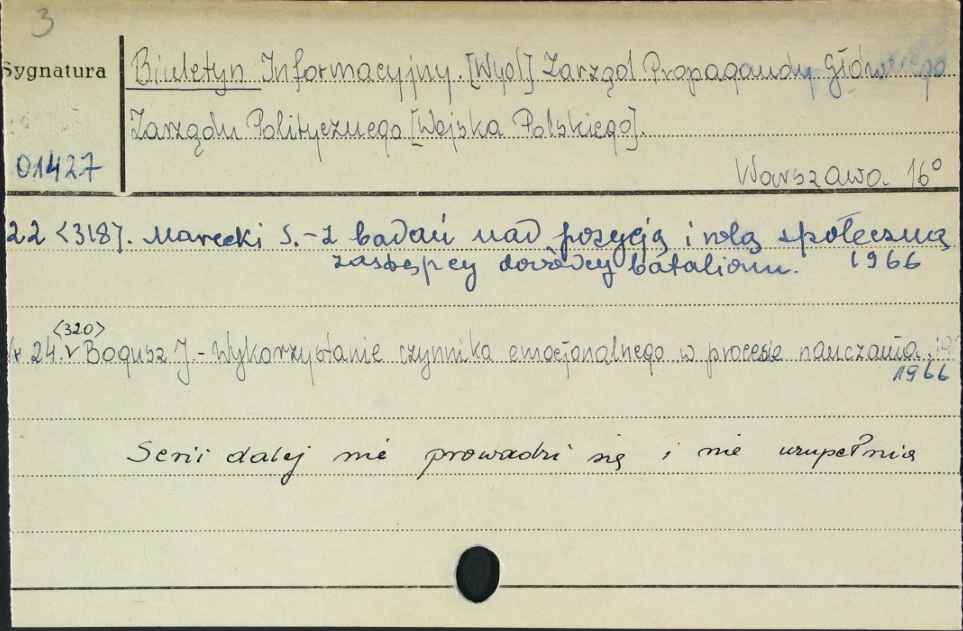 3
Sygnatura
Biuletyn Informacyjny. [Wyd] Zarząd Propagandy Głównego
Zarządu Politycznego [Wojska Polskiego].
01427
Warszawa. 16°
22 <318>. Marecki S. - Z badań nad pozycją i rolą społeczną
zastępcy dowódcy batalionu. 1966
<320>
Nr 24. v Bogusz J. - Wykorzystanie czynnika emocjonalnego w procesie nauczania.
1966
Serii dalej nie prowadzi się i nie uzupełnia